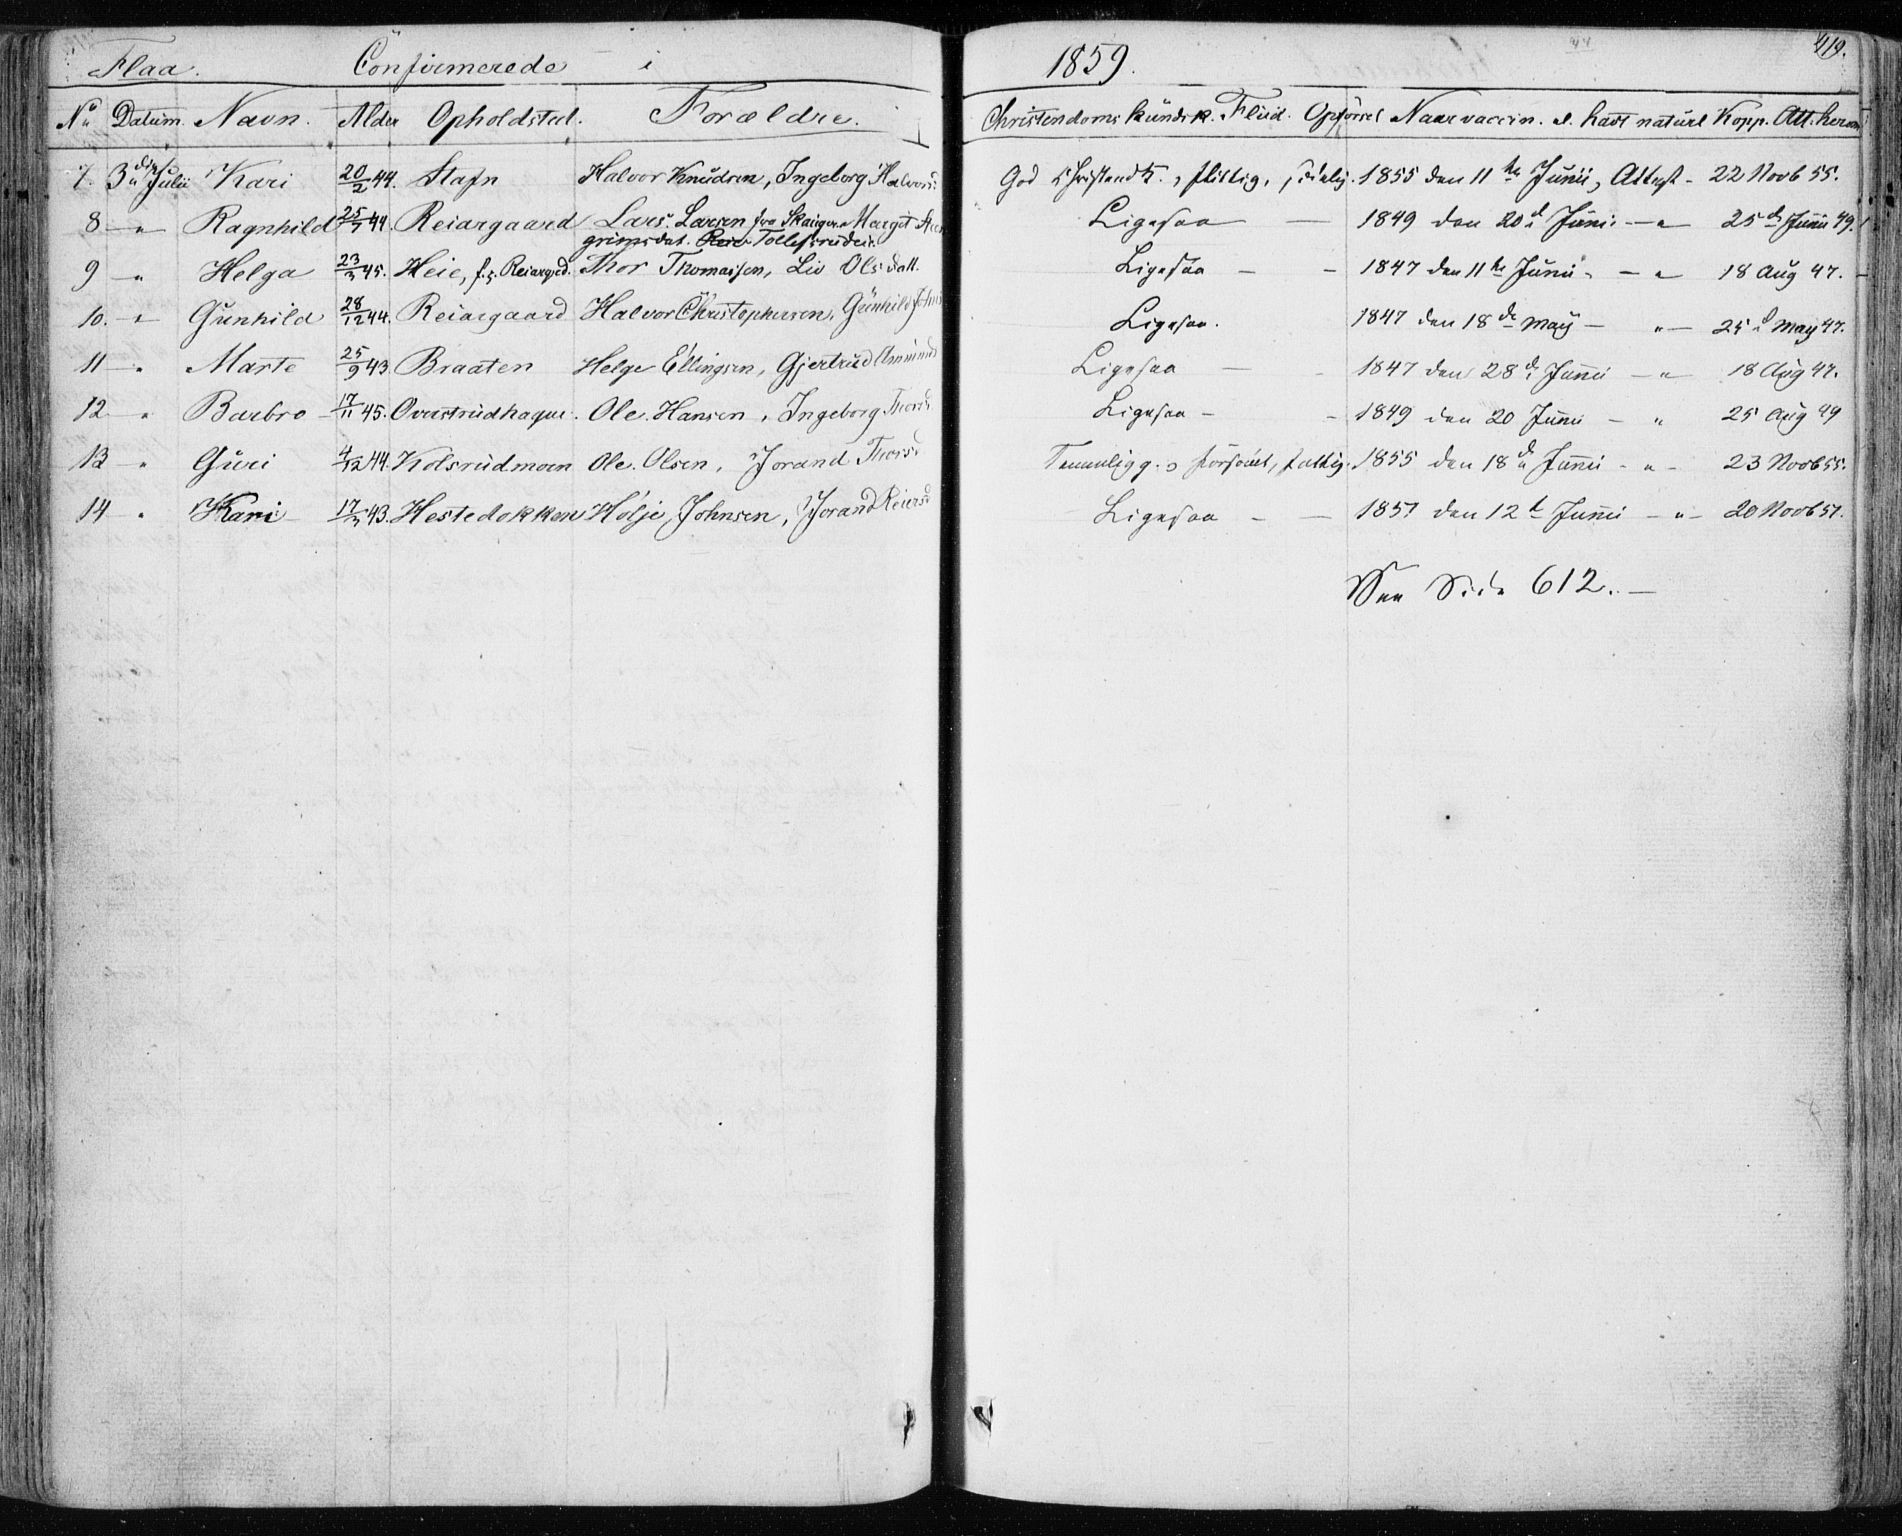 Flaa. Confirmerede i 1859. 419.
No Datum. Navn. Alder Opholdsted. Forældre. Christendoms kundsk. Fliid. Opførsel Naar vaccin. el. havt naturl Kopp. Att. herom
7. 3die Julii Kari 20/2 44. Stafn Halvor Knudsen, Ingeborg Halvors God Christend K., flittig, sædelig. 1855 den 11te Junii, Attest - 22 Novb 55.
8 - " Ragnhild 25/7 44 Reiargaard Lars Larsen fra Skaiger Margit Ligesaa - 1849 den 20d Junii - " 25de Junii 49.
grimsdat. Tollefsrudeie.
9 - " Helga 23/3 45. Heie, f. Reiargrd. Thor Thomassen, Liv Olsdatt. Ligesaa - - 1847 den 11te Junii - " 18 Aug 47.
10. - " Gunhild 28/12 44. Reiargaard Halvor Christophersen, Gunhild Johns Ligesaa. 1847 den 18de May - " - 25d May 47.
11 - " Marte 25/9 43 Braaten Helge Ellingsen, Gjertrud Amunds Ligesaa - - 1847 den 28de Junii - " 18 Aug 47.
12 - " Barbro 17/11 45. Overstrudhagen. Ole Hansen, Ingeborg Thorsd Ligesaa - - 1849 den 20 Junii - " 25 Aug 49
13 - " Guri 4/12 44. Kolsrudmoen Ole Olsen, Jorand Thorsd Temmelig g., 1855 den 18de Junii - " - 23 Novb 55.
14 - " Kari 17/7 43. Hestedokken Holje Johnsen, Jorand Reiersd Ligesaa - - 1857 den 12te Junii - " - 20 Novb 57.
See Side 612. -